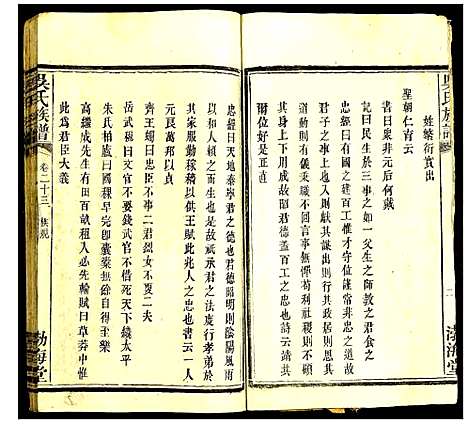 吳氏族譜
姓繁衍實出
聖朝仁育云
書云衆非元后何戴
記曰民生於三事之如一父生之師敎之君食之
有國之建百工也本末度位謹常非忠之道故
動則有儀秉職不則獻其謀出則行其政居則
思其道動則有儀不言家事無憚苟利社稷則不
其身上下用成故昭君德蓋百工之忠也詩云靖共
爾位好是正直
忠經曰天地泰寧君之德也君德昭明則陰陽風雨
以和人賴之而生也故祗承君之法度行孝弟於
其家服勤稼穡以供王賦此兆人之忠也書云一人
元良萬邦以貞
齊王蠋曰忠臣不事二君烈女不夏二夫
岳武穆曰文官不要錢武官不惜死則太平
朱氏柏廬曰國稞早完卽囊橐無餘自得至樂
高繼成先生有田百畝租入必先輸賦曰草莽中惟
此爲君臣大義
吳氏族譜
卷二十三
渤海堂
渤海堂